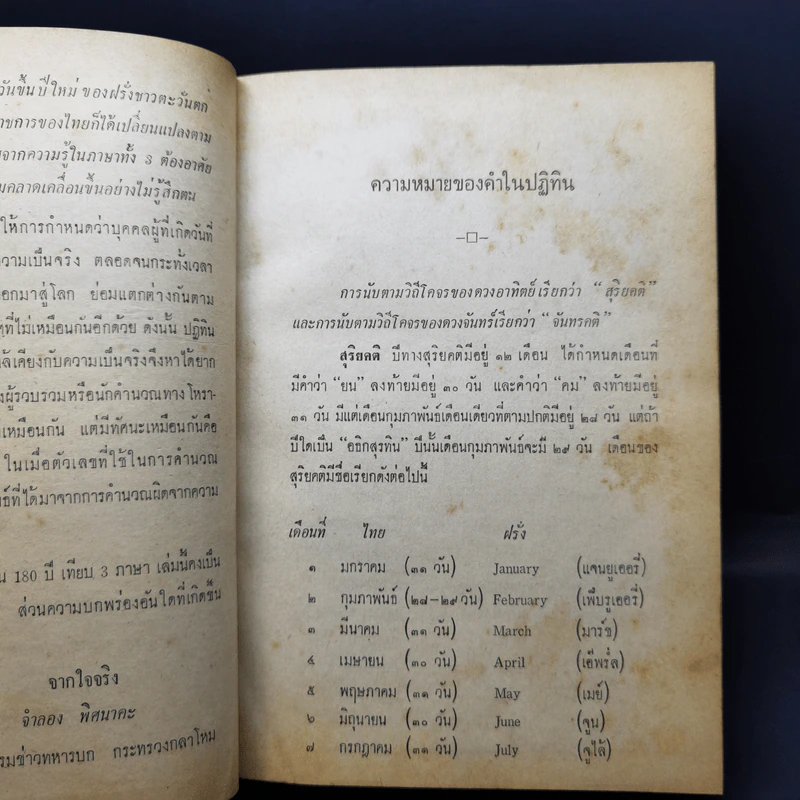 วันขึ้นปีใหม่ ของฝรั่งชาวตะวันตก
าชการของไทยก็ได้เปลี่ยนแปลงตาม
จากความรู้ในภาษาทั้ง 3 ต้องอาศัย
มคลาดเคลื่อนขึ้นอย่างไม่รู้สึกตน
ให้การกำหนดว่าบุคคลผู้ที่เกิดวันที่
วามเป็นจริง ตลอดจนกระทั่งเวลา
อกมาสู่โลก ย่อมแตกต่างกันตาม
ที่ไม่เหมือนกันอีกด้วย ดังนั้น ปฏิทิน
ล้เคียงกับความเป็นจริงจึงหาได้ยาก
งผู้รวบรวมหรือนักคำนวณทางโหรา-
เหมือนกัน แต่มีทัศนะเหมือนกันคือ
ในเมื่อตัวเลขที่ใช้ในการคำนวณ
ธ์ที่ได้มาจากการคำนวณผิดจากความ
น 180 ปี เทียบ 3 ภาษา เล่มนี้คงเป็น
ส่วนความบกพร่องอันใดที่เกิดขึ้น
จากใจจริง
จำลอง พิศนาคะ
รมข่าวทหารบก กระทรวงกลาโหม
ความหมายของคำในปฏิทิน
การนับตามวิถีโคจรของดวงอาทิตย์เรียกว่า “ สุริยคติ”
และการนับตามวิถีโคจรของดวงจันทร์เรียกว่า “ จันทรคติ”
สุริยคติ ปีทางสุริยคติมีอยู่ ๑๒ เดือน ได้กำหนดเดือนที่
มีคำว่า “ยน” ลงท้ายมีอยู่ ๓๐ วัน และคำว่า “คม” ลงท้ายมีอยู่
๓๑ วัน มีแต่เดือนกุมภาพันธ์เดือนเดียวที่ตามปกติมีอยู่ ๒๘ วัน แต่ถ้า
ปีใดเป็น “อธิกสุรทิน” ปีนั้นเดือนกุมภาพันธ์จะมี ๒๙ วัน เดือนของ
สุริยคติมีชื่อเรียกดังต่อไปนี้
เดือนที่ ไทย ฝรั่ง
๑ มกราคม (๓๑ วัน) January (แจนยูเออรี่)
๒ กุมภาพันธ์ (๒๘–๒๙ วัน) February (เฟ็บรูเออรี่)
๓ มีนาคม (๓๑ วัน) March (มาร์ช)
๔ เมษายน (๓๐ วัน) April (เอ๊พริ่ล)
๕ พฤษภาคม (๓๑ วัน) May (เมย์)
๖ มิถุนายน (๓๐ วัน) June (จูน)
๗ กรกฎาคม (๓๑ วัน) July (จูไล้)